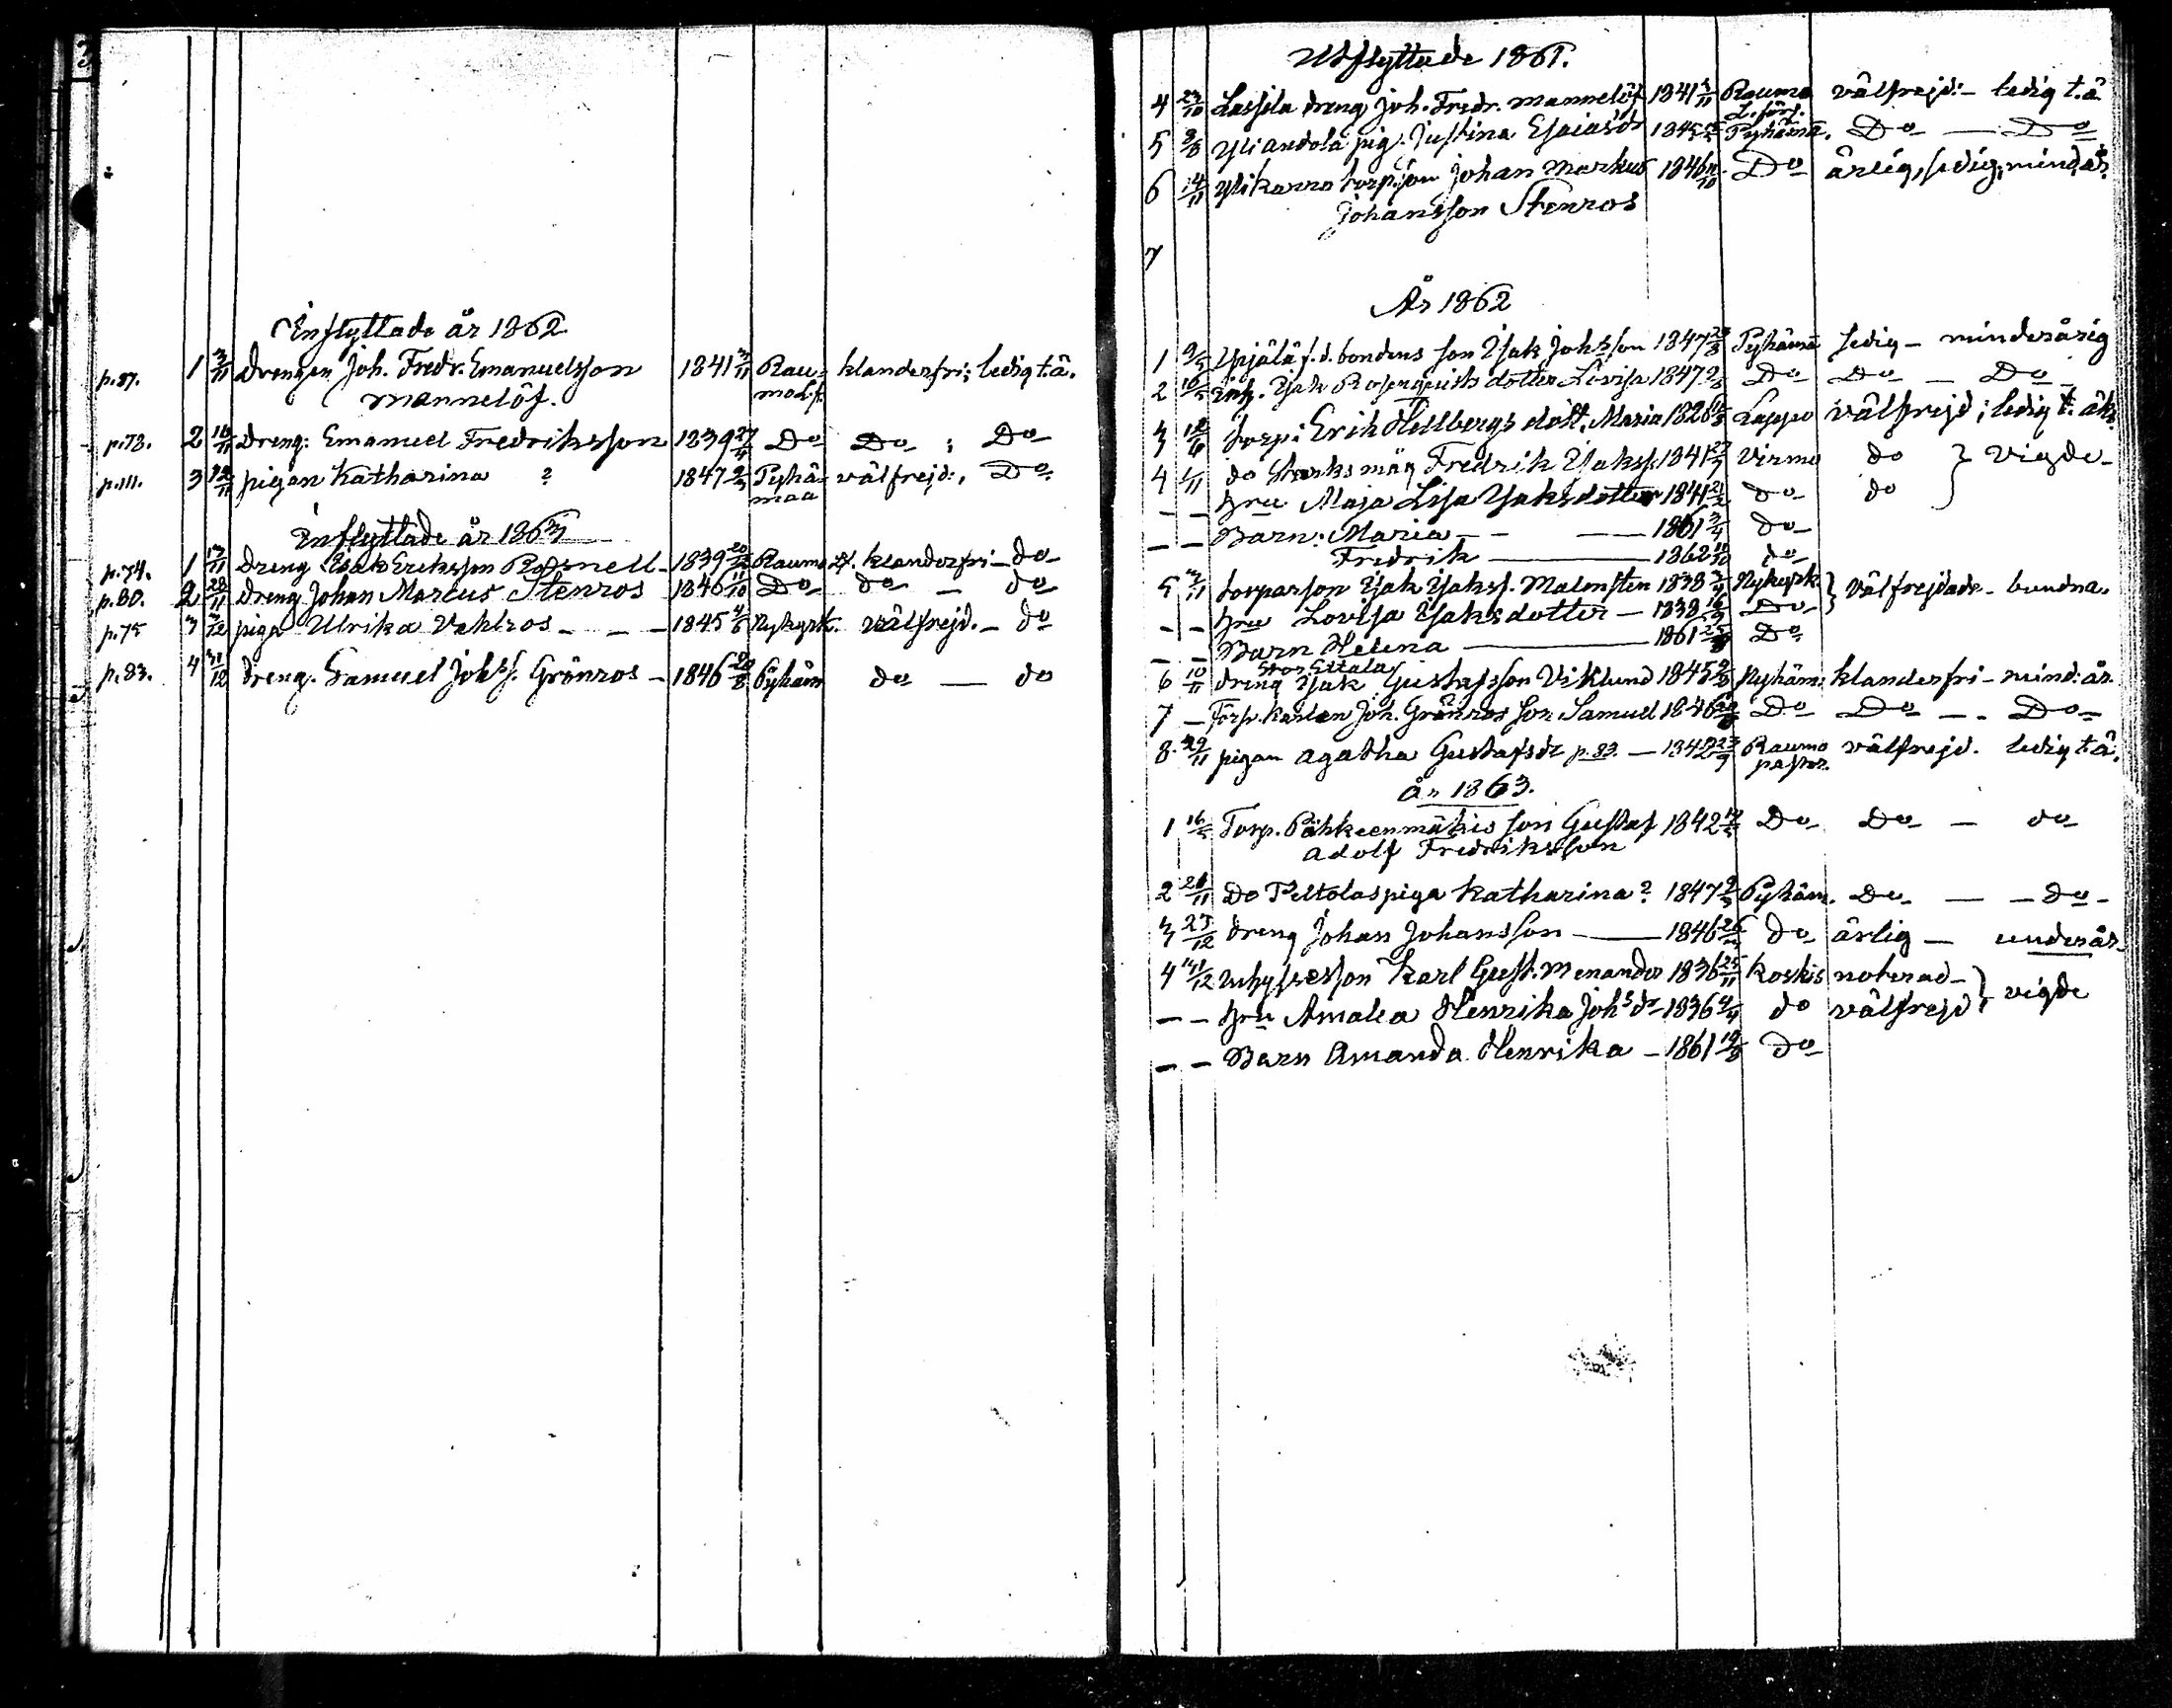 Inflyttade år 1862
p.87. 1 3/11 Drengen Joh. Fredr. Emanuelsson 1841 3/11 Rau- klanderfri; ledig t.ä.
Mannelöf. mo L.f.
p.73. 2 10/11 Dreng: Emanuel Fredriksson 1839 Do Do ; Do
p.111. 3 12/11 pigan Katharina ? 1847 Pyhä- välfrejd:, Do
maa
Inflyttade år 1863
p.74. 1 13/11 Dreng Isak Eriksson Rosnell - 1839 Raumo Lf. klanderfri - do
p.80. 2 28/11 Dreng Johan Marcus Stenros 1846 11/10 Do do - do
p.75 3 3/12 piga Ulrika Vahlros - - - 1845 4/6 Nykyrk. välfrejd. - do
p.83. 4 31/12 dreng. Samuel Johss. Grönros - 1846 Pyhäm do - do
Utflyttade 1861.
4 23/10 Lassila dreng Joh. Fredr. Mannelöf 1841 3/11 Raumo välfrejd:- ledig t.ä
L.förs.
5 Yliandola pig. Justina Esaiasdr 1845 Pyhämä. Do - Do
6 14/11 Ylikarro torp.son Johan Markus 1846 11/10 Do ärlig, ledig, mind.år.
Johansson Stenros
7
År 1862
1 f.d. bondens son Isak Johsson 1847 Pyhämä ledig - minderårig
2 Isak Rosenqvists dotter Lovisa 1847 Do Do - Do
3 12/6 torp: Erik Hellbergs dott. Maria 1826 Lappo välfrejd; ledig t. äk.
4 1/11 do Starks måg Fredrik Isakss. 1841 Virmo do } vigde -
- - hru Maja Lisa Isaksdotter 1841 do do
- - Barn: Maria - - - 1861 do
Fredrik - 1862 do
5 3/11 torparson Isak Isakss. Malmsten 1838 Nykyrk } välfrejdade - bundna.
- - hru Lovisa Isaksdotter - 1839 Do
- - Barn Helena - 1861 Do
Stor Ettala
6 10/11 dreng Isak Gustafsson Viklund 1845 Pyhäm: klanderfri - mind: år.
7 - Torp. karlen Joh. Grönros son Samuel 1846 Do Do - - Do -
8. 29/11 pigan Agatha Gustafsdr p.83. - 1842 23/9 Raumo välfrejd. ledig t.ä.
pastor.
År 1863.
1 Torp. Pähkeenmäkis son Gustaf 1842 Do Do - do
Adolf Fredriksson
2 21/11 Do Peltolas piga Katharina ? 1847 Pyhäm. Do - - do -
3 23/12 dreng Johan Johansson - 1846 do ärlig - underår.
4 31/12 Karl Gust. Menander 1836 25/11 Koskis noterad - } vigde
- - hru Amalia Henrika Johsdr - 1836 do välfrejd
- - Barn Amanda Henrika - 1861 do